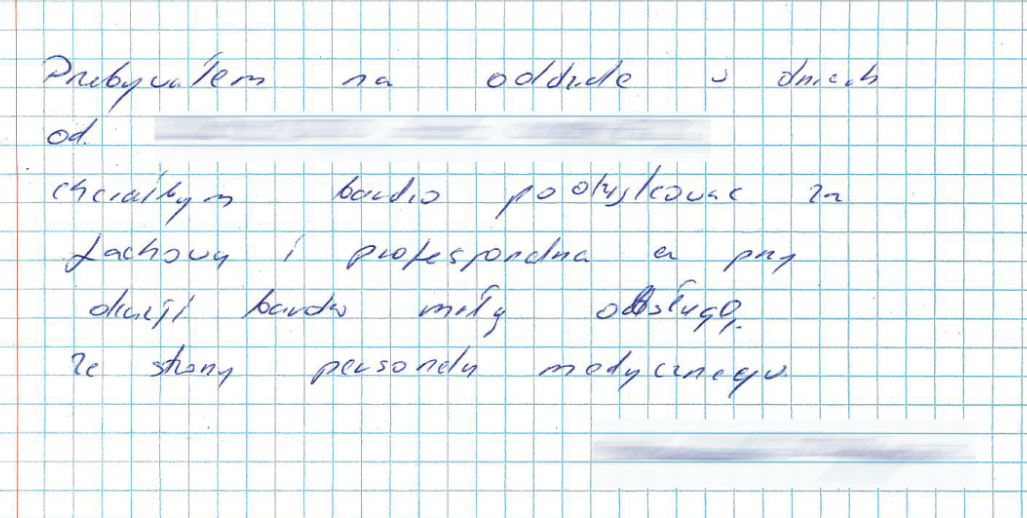 Przebywałem na oddziale w dniach
od.
chciałbym bardzo podziękować za
fachową i profesjonalną a przy
okazji bardzo miłą obsługę,
ze strony personelu medycznego.